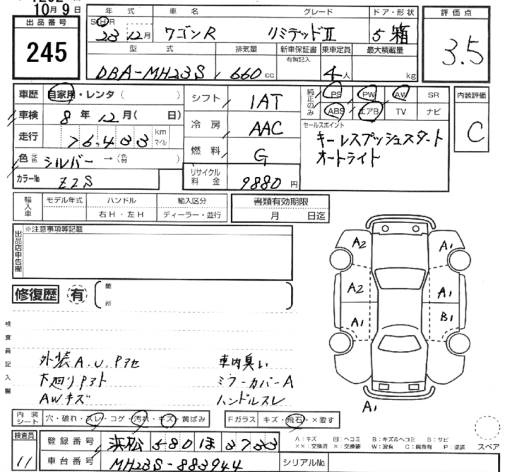 10月9日
出品番号
245
年式 車名 グレード ドア・形状
23年12月 ワゴンR リミテッドⅡ 5 箱
型式 排気量 新車保証書 有無記入 乗車定員 最大積載量
DBA-MH23S 660cc 4人 kg
評価点
3.5
車歴 自家用・レンタ( )
車検 8年12月(日)
走行 76,433 km マイル
色 シルバー→
カラーNo ZZS
シフト 1AT
冷房 AAC
燃料 G
リサイクル料金 9880円
純正のみ PS PW AW SR
ABS エアB TV ナビ
セールスポイント
キーレスプッシュスタート
オートライト
内装評価
C
輸入車 モデル年式 ハンドル 輸入区分
右H・左H ディーラー・並行
書類有効期限
月 日迄
出品店申告欄 ※注意事項等記載
修復歴 有 箇所
検査員記入欄
外装A.U.Pアセ 車内臭い
大廻りPヌト ミラーカバーA
AWキズ ハンドルスレ
A2 A1
A2 A1
A1 B1
A1
内装シート 穴・破れ・スレ・コゲ・汚れ・キズ・黄ばみ
Fガラス キズ・飛石・×要す
検査員 11
登録番号 浜松 580 ほ 3733
車台番号 MH23S-883944
シリアルNo
A:キズ U:ヘコミ B:キズ&ヘコミ S:サビ
スペア